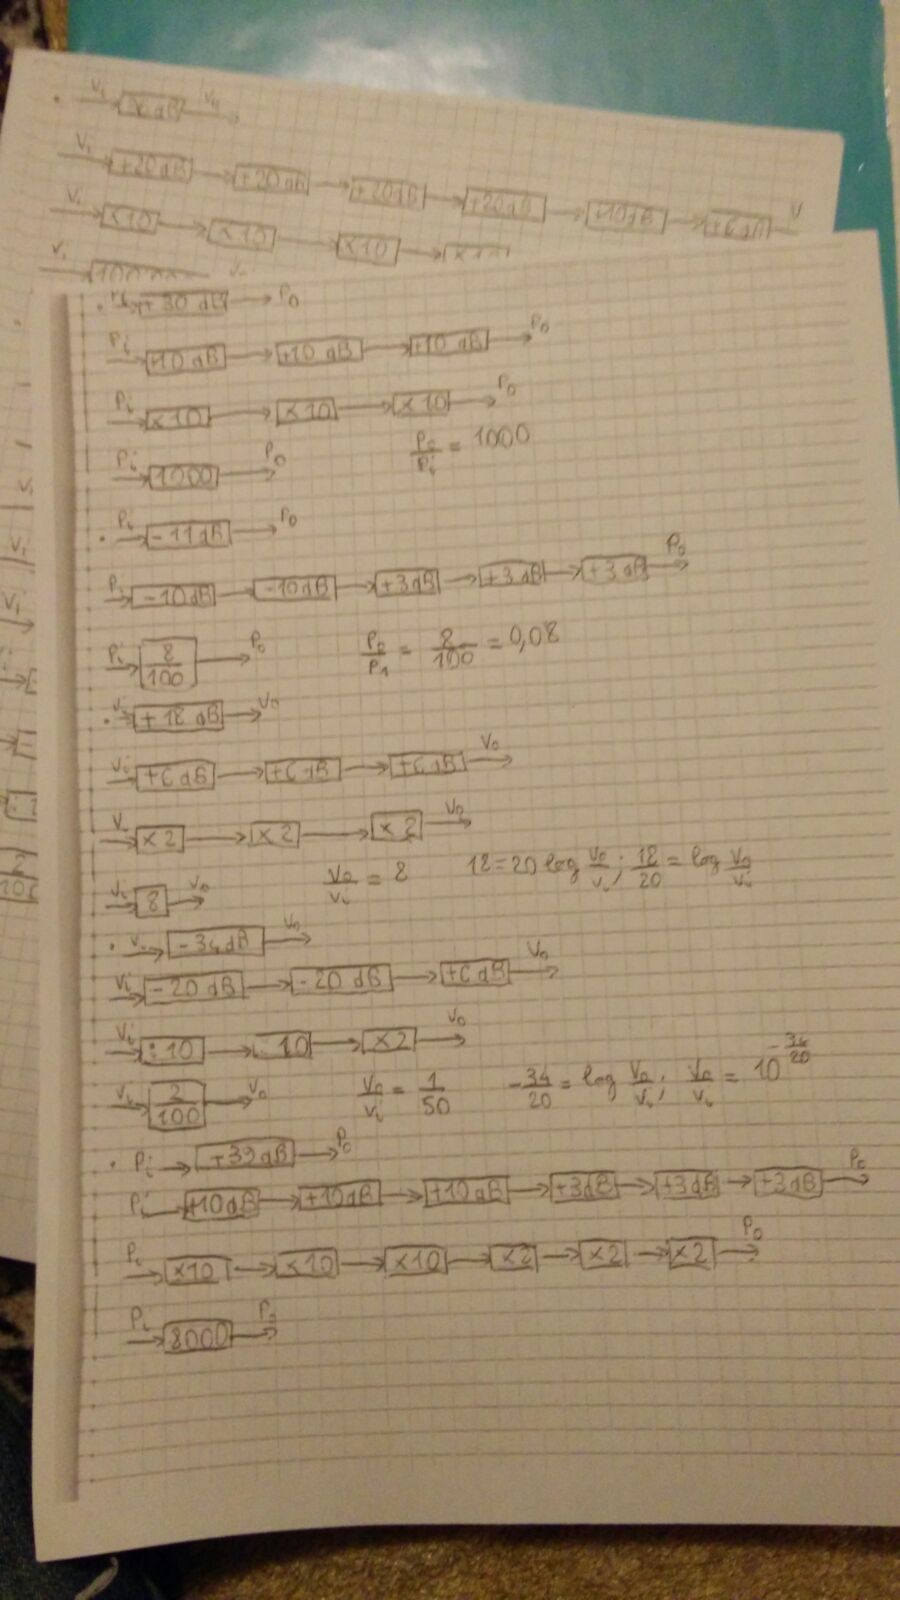 Vi +20dB +20dB +20dB +20dB
Vi ×10 ×10 ×10
Vi
+30 dB P0
Pi +10 dB +10 dB +10 dB P0
Pi ×10 ×10 ×10 P0
Pi 1000 P0 P0/Pi = 1000
Pi -11dB P0
Pi -10dB -10dB +3dB +3dB +3dB P0
Pi 8/100 P0 P0/P1 = 8/100 = 0,08
Vi +18 dB V0
Vi +6dB +6dB +6dB V0
Vi ×2 ×2 ×2 V0
Vi 8 V0 V0/Vi = 8 18=20 log V0/Vi ; 18/20 = log V0/Vi
Vi -34dB V0
Vi -20dB -20dB +6dB V0
Vi :10 :10 ×2 V0
Vi 2/100 V0 V0/Vi = 1/50 -34/20 = log V0/Vi ; V0/Vi = 10^(-34/20)
Pi +39dB P0
Pi +10dB +10dB +10dB +3dB +3dB +3dB P0
Pi ×10 ×10 ×10 ×2 ×2 ×2 P0
Pi 8000 P0